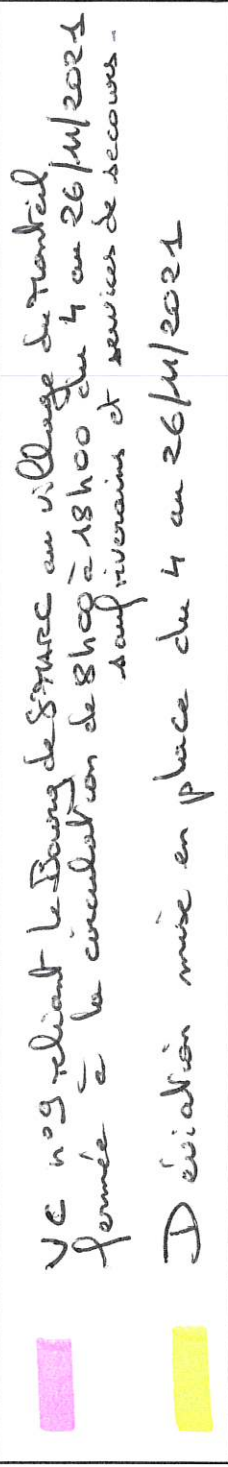 VC n°9 reliant le Bourg de St MARC au village du Monteil
fermée à la circulation de 8h00 à 18h00 du 4 au 26/11/2021
sauf riverains et services de secours.
Déviation mise en place du 4 au 26/11/2021